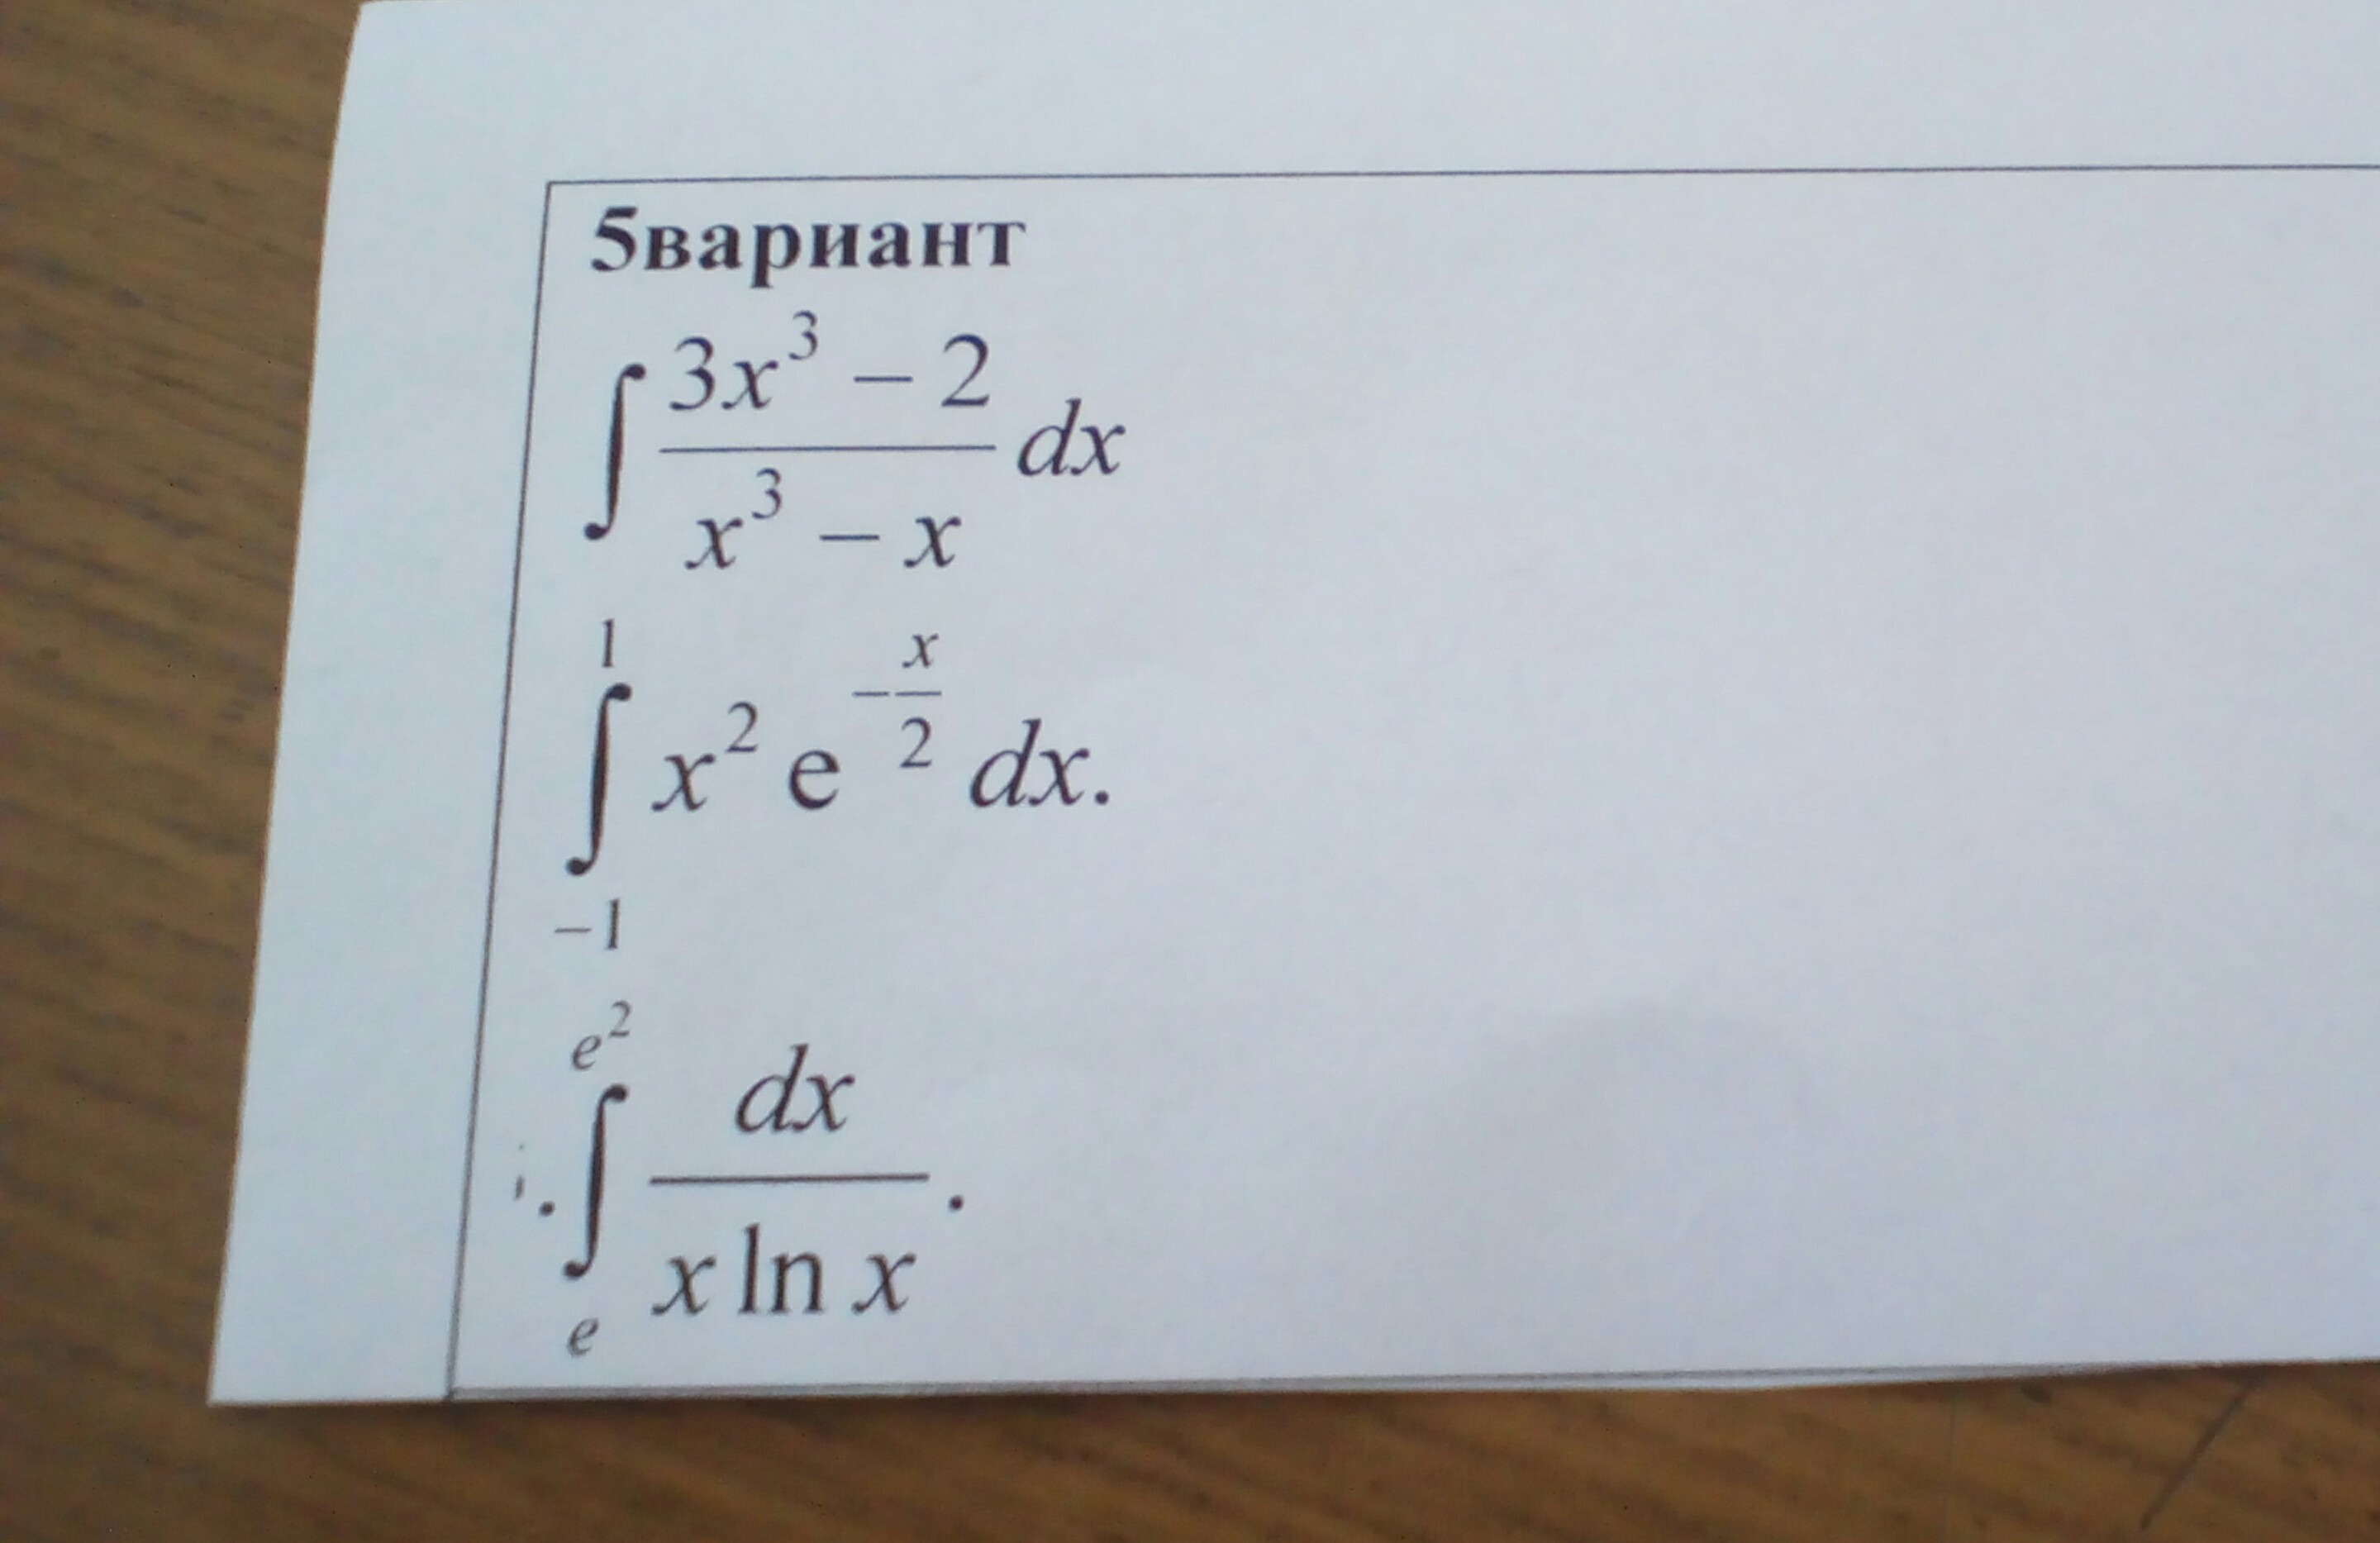 5вариант
∫ (3x³ − 2)/(x³ − x) dx
∫₋₁¹ x² e^(−x/2) dx.
. ∫ₑ^(e²) dx/(x ln x) .